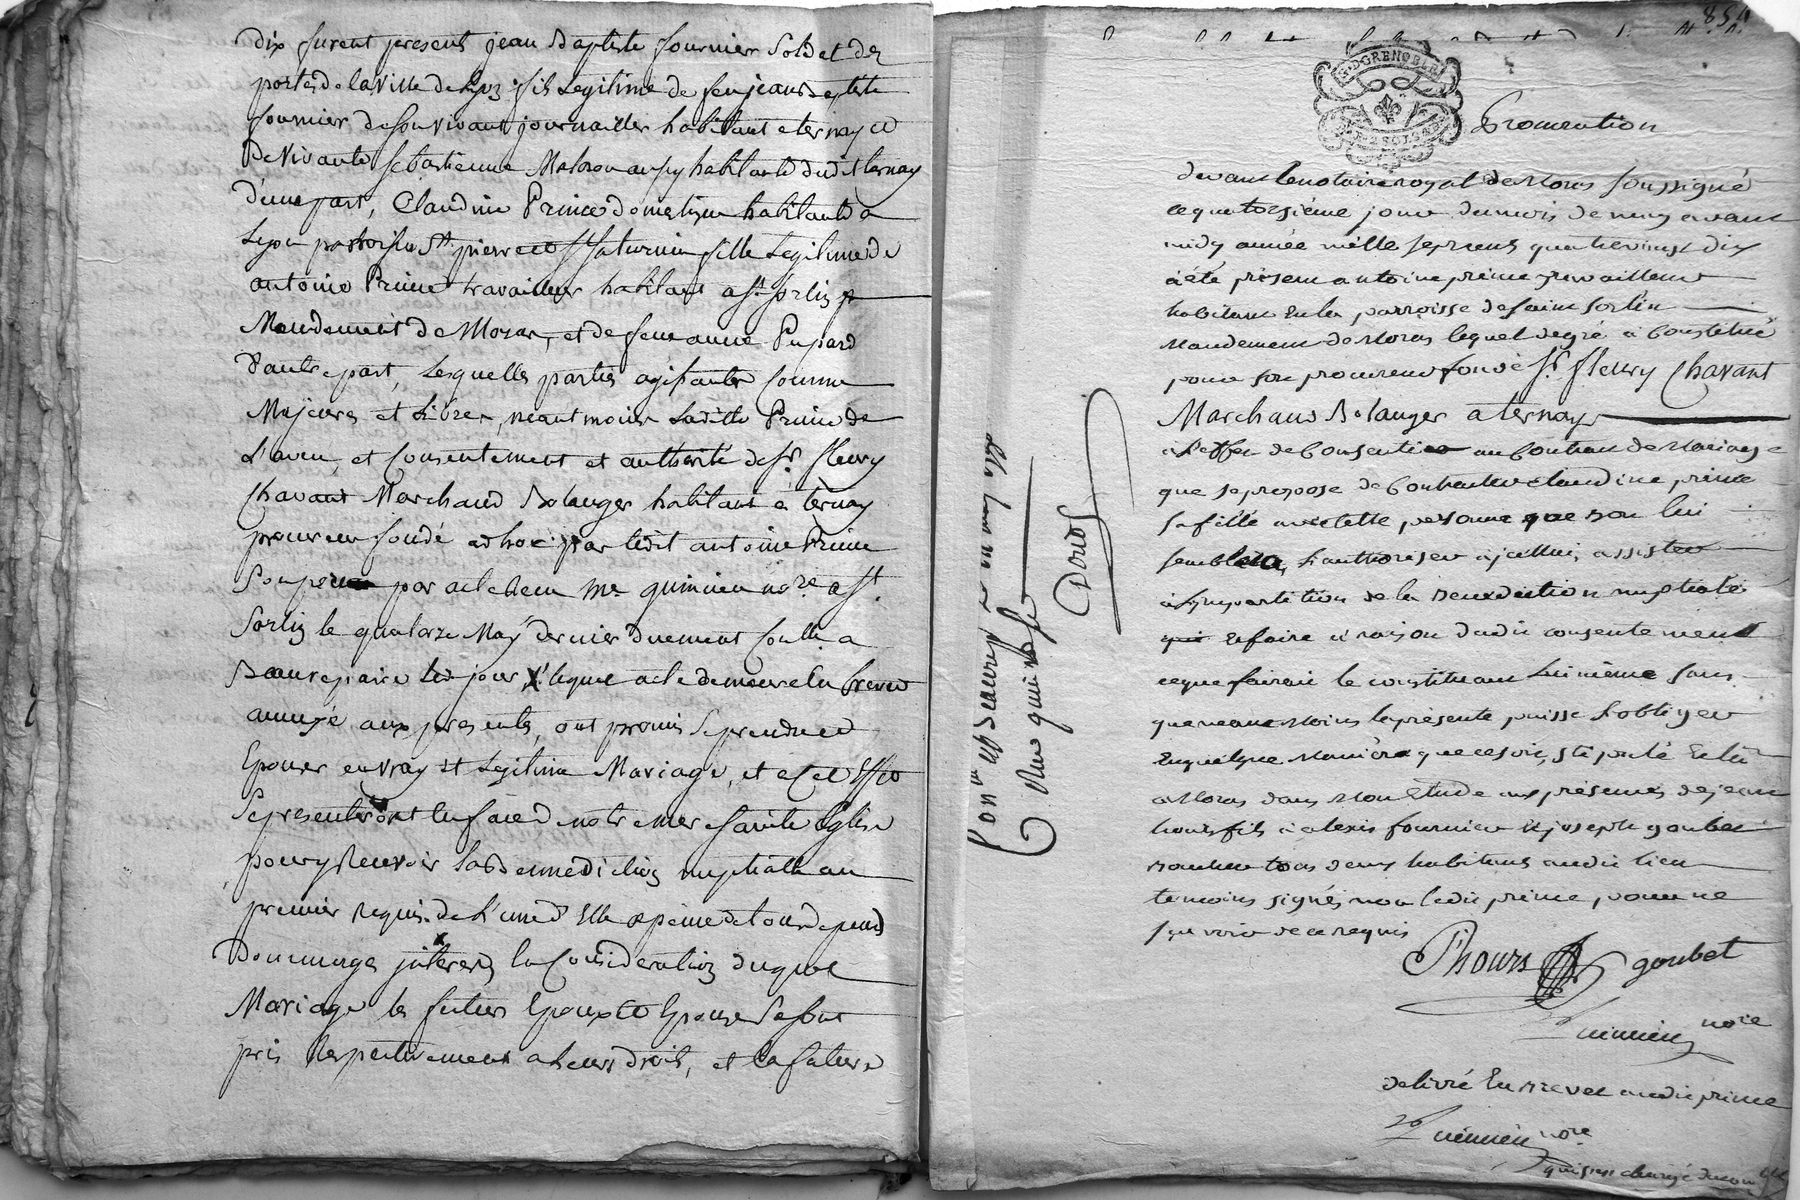 Dix furent presents jean Baptiste fournier Soldat des
portes de la Ville de Lyon fils Legitime de feu jean Baptiste
fournier de son vivant journaillier habitant a ternay et
De vivante Sebastienne habitante dudit ternay
D'une part, Claudine Prime domestique habitante a
Lyon paroisse St pierre et St Saturnin fille Legitime de
antoine Prime travailleur habitant a St Sorlin
Mandement de Moras, et de feue anne Pupard
D'autre part, Lesquelles parties agissantes Comme
Majeures et Libres, neantmoins Ladite Prime de
L'aveu, et Consentement et authorité de Sr. fleury
Chavant Marchand Bolanger habitant à ternay
procureur fondé ad hoc par ledit antoine Prime
Son pere par acte recu Me quinieu nore. a St.
Sorlin le quatorze May dernier duement Contlé a
Beaurepaire led jour, lequel acte demeurera en brevet
annexé aux presentes, ont promis se prendre et
Epouser en vray et Legitime Mariage, et a Cet Effet
Se presenteront en face de notre mere sainte Eglise
pour y Recevoir La Bennediction nuptialle au
premier Requis de L'un ou d'Elle a peine de tous depends
Dommages jnterets, en Consideration duquel
Mariage les futurs Epoux et Epouse Se sont
pris Respectivement a leurs droits, et la future
854
G. D. GRENOBLE
2 SOLS
Procuration
devant le notaire royal de Moras soussigné
ce quatorsième jour du mois de may avant
midy année mille sept cents quatrevingt dix
a été présent antoine prime travailleur
habitant en la parroisse de saint sorlin
Mandement de Moras lequel de gré a Constitué
pour son procureur fondé Sr. fleury Chavant
Marchand Bolanger a ternay
a l'effet de Consentir au Contrat de Mariage
que se propose de Contracter claudine prime
sa fille avec telle personne que bon lui
semblera, l'authoriser a jcelluy, assister
a l'impartition de la Benediction nuptiale
et faire a raison dudit consentement
ce que fairoit le constituant lui même sans
que neant Moins la présente puisse l'obliger
en quelque Manière que ce soit, stipulé et lu
a Moras dans Mon Etude aux présences de jean
hours fils a alexis fournier et joseph goubet
tous deux habitans audit lieu
temoins signés, non ledit prime pour ne
sçavoir de ce requis
Phours goubet
Quinieu nore
delivré En Brevet audit prime
Quinieu nore
Conlé a Beaurep. le may 1790
Reçu quinze s.